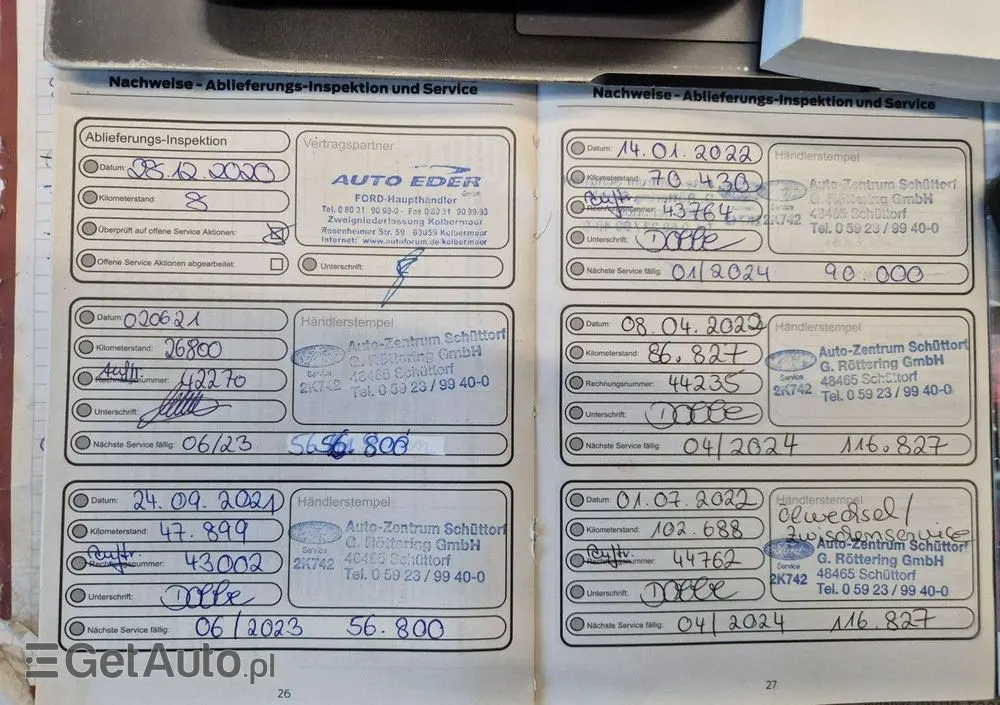 Nachweise - Ablieferungs-Inspektion und Service
Ablieferungs-Inspektion
Datum: 28.12.2020
Kilometerstand: 8
Überprüft auf offene Service Aktionen:
Offene Service Aktionen abgearbeitet:
Vertragspartner
AUTO EDER
GmbH
FORD-Haupthändler
Tel. 0 80 31 90 99-0 - Fax 0 80 31 90 99-93
Zweigniederlassung Kolbermoor
Rosenheimer Str. 59 83059 Kolbermoor
Internet: www.autoforum.de/kolbermoor
Unterschrift:
Datum: 020621
Kilometerstand: 26800
Auftr.
Rechnungsnummer: 42270
Unterschrift:
Nächste Service fällig: 06/23 56.800
Händlerstempel
Service
2K742
Auto-Zentrum Schüttorf
G. Röttering GmbH
48465 Schüttorf
Tel. 0 59 23 / 99 40-0
Datum: 24.09.2021
Kilometerstand: 47.899
Auftr.
Rechnungsnummer: 43002
Unterschrift:
Nächste Service fällig: 06/2023 56.800
Händlerstempel
Service
2K742
Auto-Zentrum Schüttorf
G. Röttering GmbH
48465 Schüttorf
Tel. 0 59 23 / 99 40-0
26
Nachweise - Ablieferungs-Inspektion und Service
Datum: 14.01.2022
Kilometerstand: 70 430
Auftr.
Rechnungsnummer: 43764
Unterschrift:
Nächste Service fällig: 01/2024 90.000
Händlerstempel
2K742
Auto-Zentrum Schüttorf
G. Röttering GmbH
48465 Schüttorf
Tel. 0 59 23 / 99 40-0
Datum: 08.04.2022
Kilometerstand: 86.827
Rechnungsnummer: 44235
Unterschrift:
Nächste Service fällig: 04/2024 116.827
Händlerstempel
Service
2K742
Auto-Zentrum Schüttorf
G. Röttering GmbH
48465 Schüttorf
Tel. 0 59 23 / 99 40-0
Datum: 01.07.2022
Kilometerstand: 102.688
Auftr.
Rechnungsnummer: 44762
Unterschrift:
Nächste Service fällig: 04/2024 116.827
Händlerstempel
Ölwechsel/
Zwischenservice
Service
2K742
Auto-Zentrum Schüttorf
G. Röttering GmbH
48465 Schüttorf
Tel. 0 59 23 / 99 40-0
27
GetAuto.pl